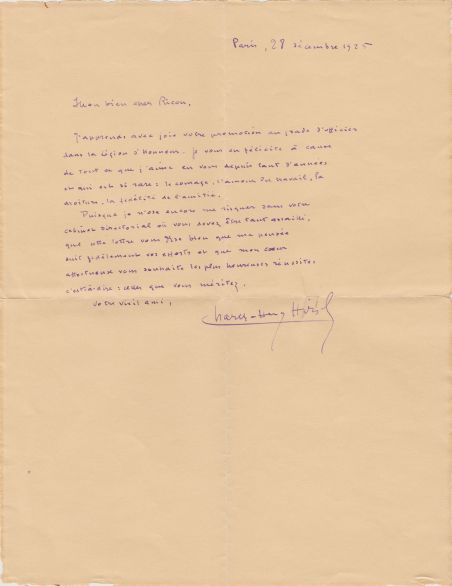 Paris, 28 décembre 1925
Mon bien cher Ricou,
J'apprends avec joie votre promotion au grade d'officier
dans la Légion d'honneur. Je vous en félicite à cause
de tout ce que j'aime en vous depuis tant d'années
et qui est si rare : le courage, l'amour du travail, la
droiture, la fidélité de l'amitié.
Puisque je n'ose encore me risquer dans votre
cabinet directorial où vous devez être tant assailli,
que cette lettre vous dise bien que ma pensée
suit fidèlement vos efforts et que mon cœur
affectueux vous souhaite les plus heureuses réussites,
c'est-à-dire : celles que vous méritez.
Votre vieil ami,
Charles-Henry Hirsch